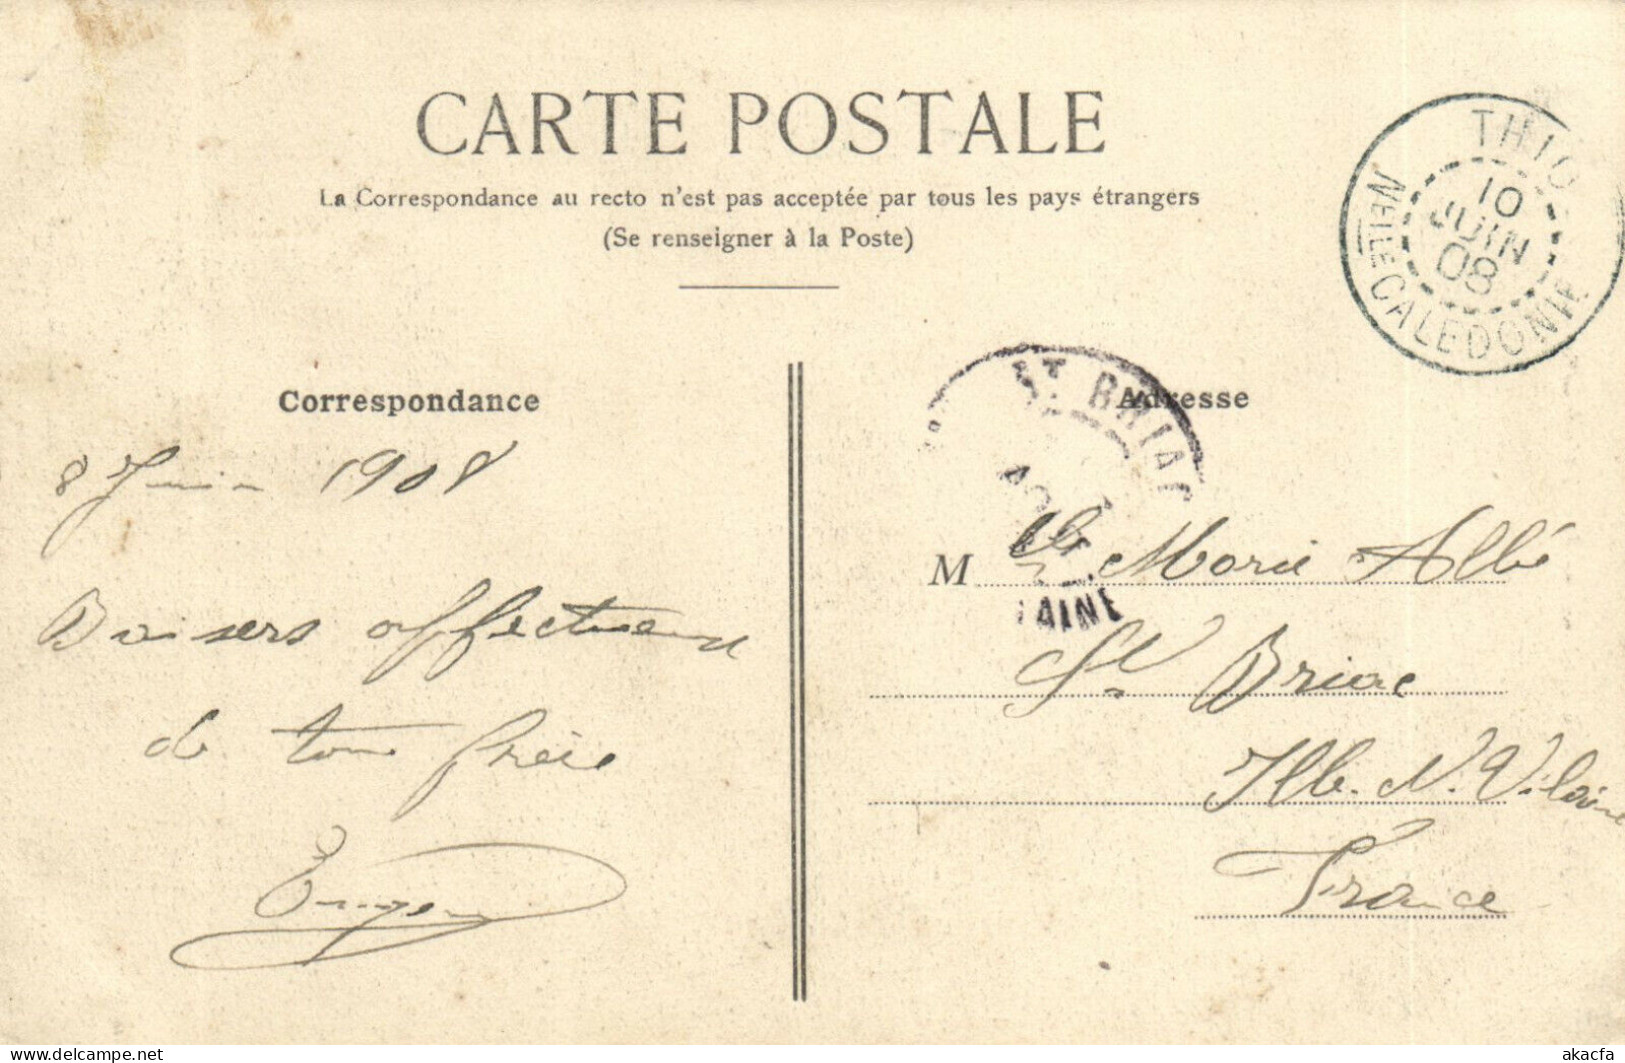 CARTE POSTALE
La Correspondance au recto n'est pas acceptée par tous les pays étrangers
(Se renseigner à la Poste)
THIO
10
JUIN
08
NELLE CALEDONIE
Correspondance
8 Juin 1908
Baisers affectueux
de ton frère
ST BRIAC
AINE
Adresse
M lle Marie Allé
St Briac
Ille. V. Vilaine
France
akacfa